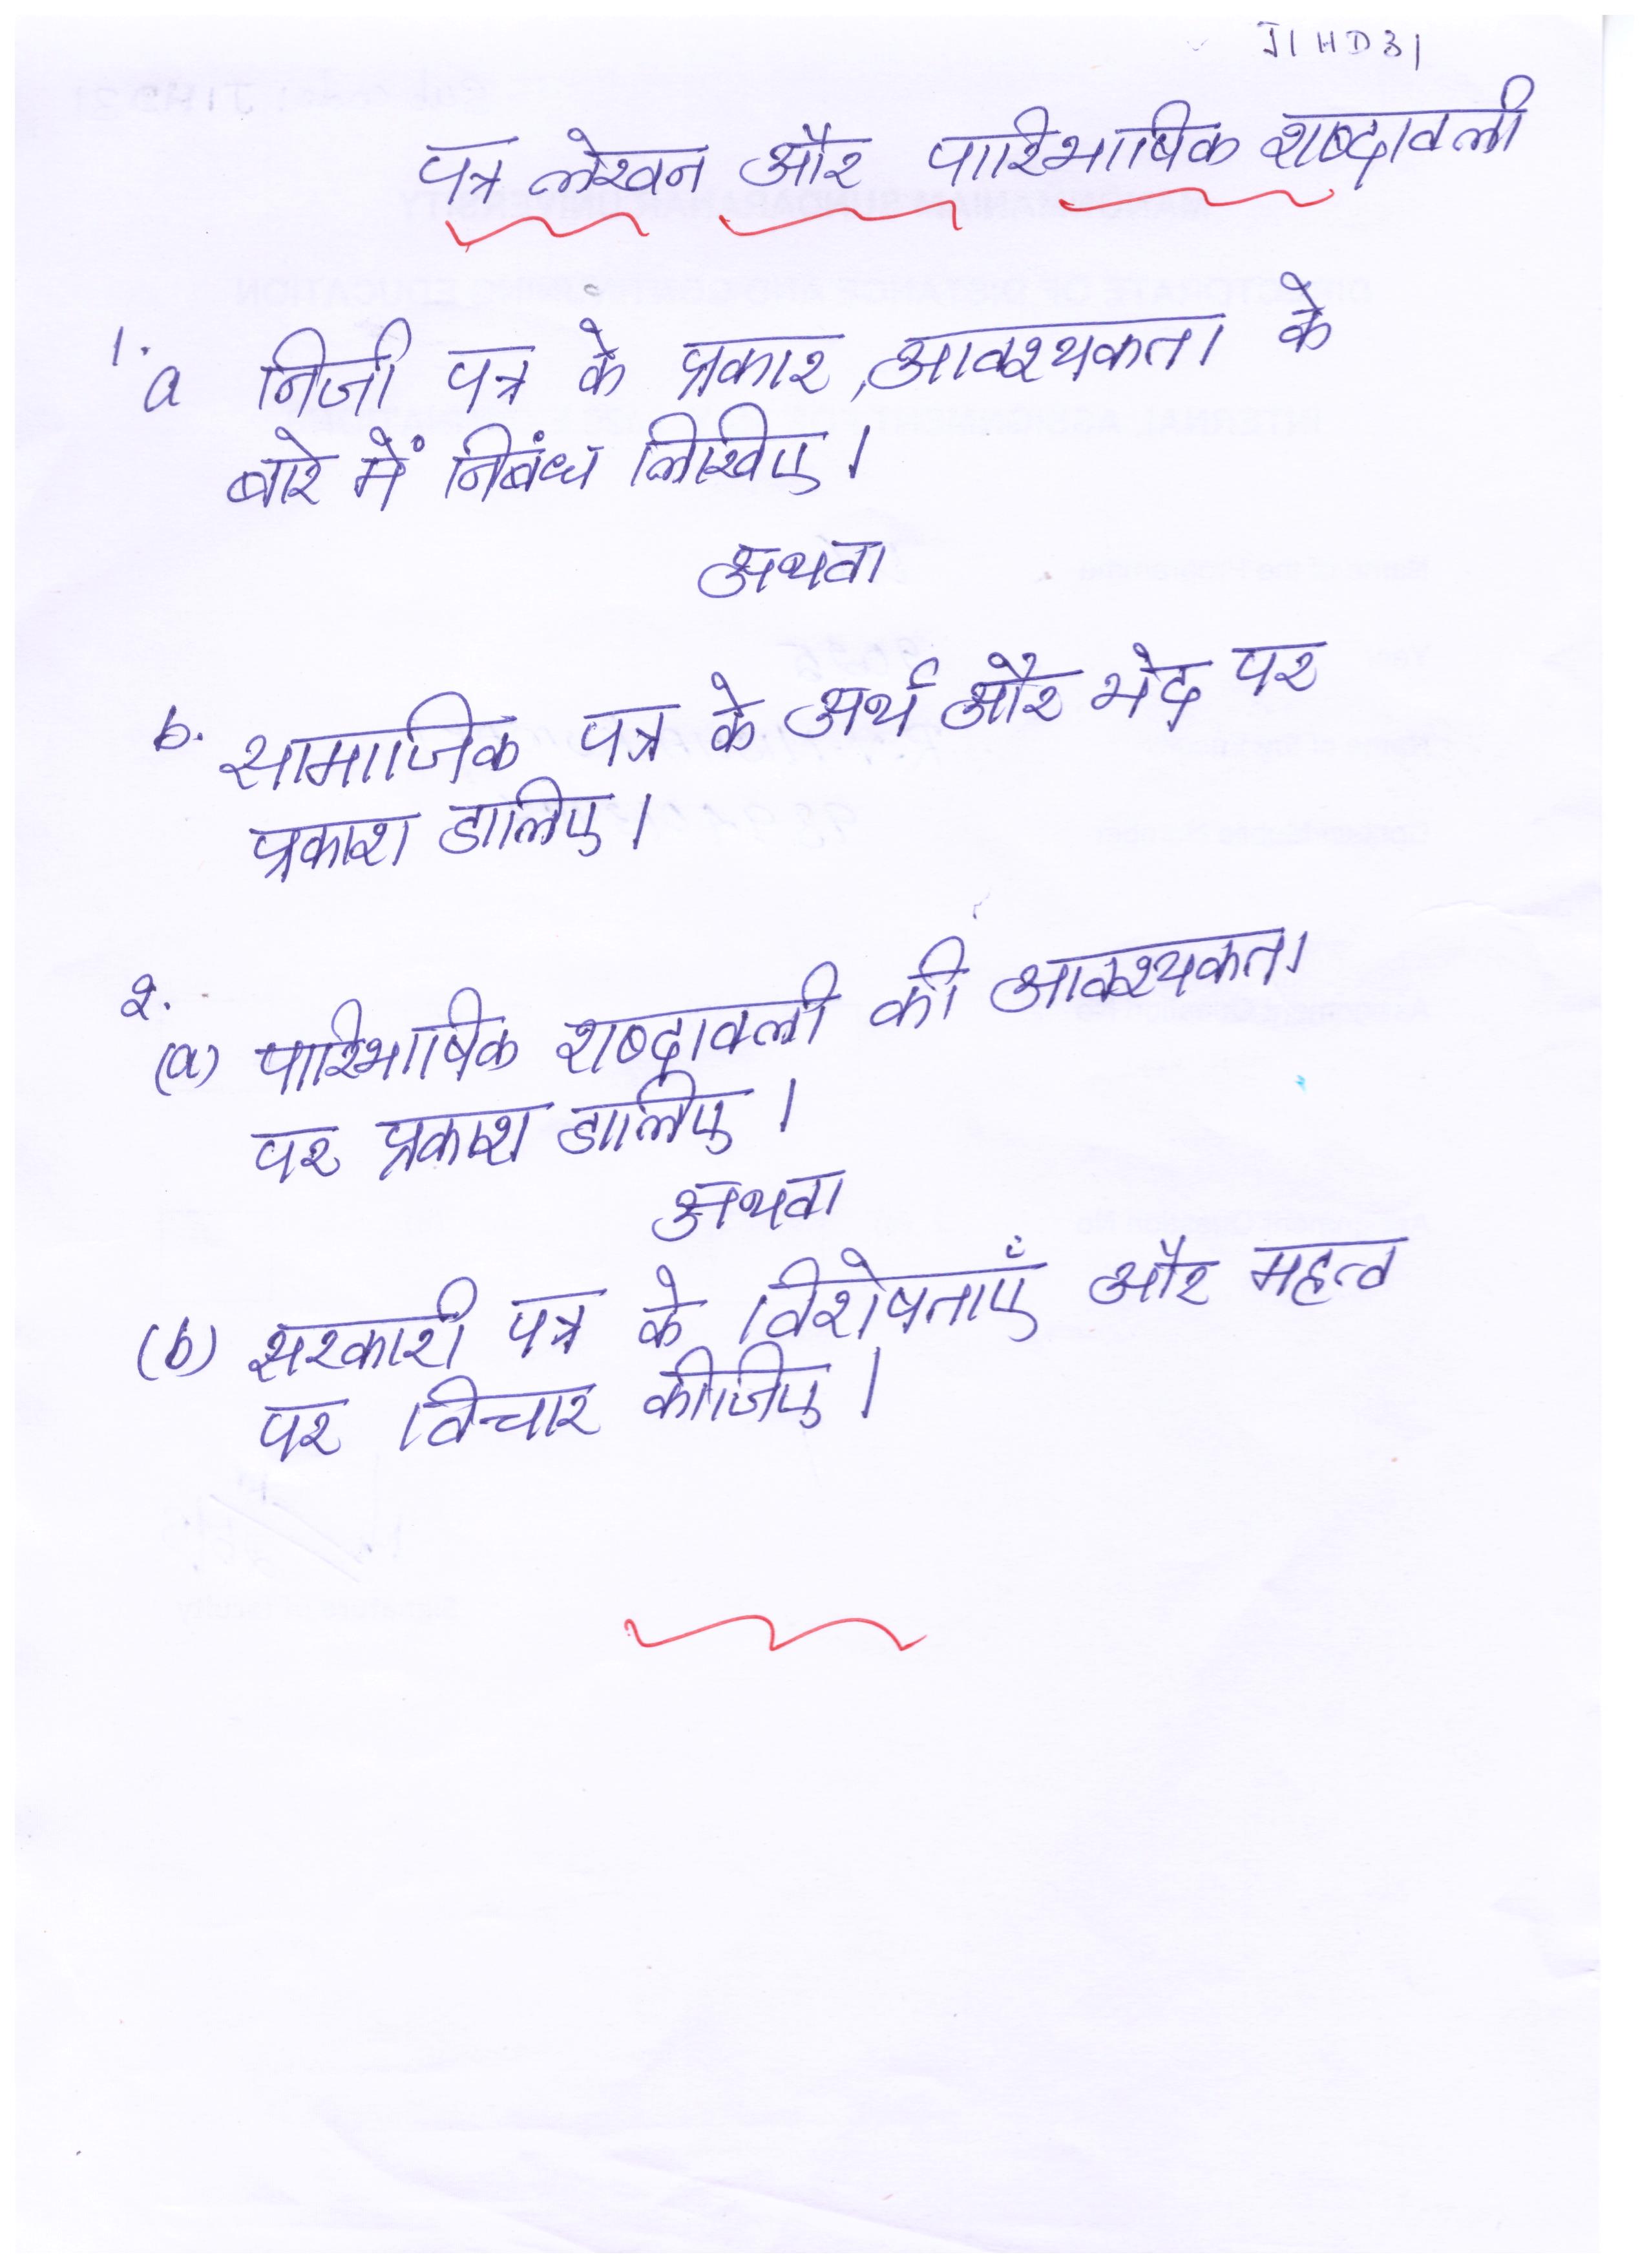 J1HD31
पत्र लेखन और पारिभाषिक शब्दावली
1.
a निजी पत्र के प्रकार, आवश्यकता के
बारे में निबंध लिखिए।
अथवा
b. सामाजिक पत्र के अर्थ और भेद पर
प्रकाश डालिए।
2.
(a) पारिभाषिक शब्दावली की आवश्यकता
पर प्रकाश डालिए।
अथवा
(b) सरकारी पत्र के विशेषताएँ और महत्व
पर विचार कीजिए।